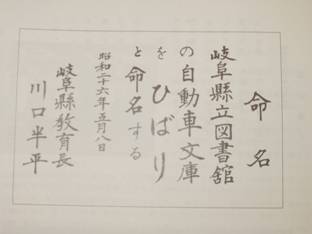 命名
岐阜縣立図書舘
の自動車文庫
を ひばり
と命名する
昭和二十六年五月八日
岐阜縣教育長
川口半平